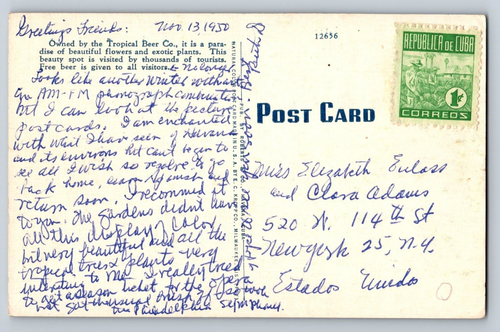 Greetings Friends: Nov. 13, 1950
Owned by the Tropical Beer Co., it is a para-
dise of beautiful flowers and exotic plants. This
beauty spot is visited by thousands of tourists.
Free beer is given to all visitors.
Looks like another winter without
an AM-FM phonograph combination
but I can look at the picture
post cards. I am enchanted
with what I have seen of Havana
and its environs but can't begin to
see all I wish so resolve to go
back home, learn Spanish and
return soon. I recommend it
to you. The gardens didn't have
all this display of color
but very beautiful and all the
tropical trees & plants very
interesting to me. I really tried
to get a season ticket for the opera
Philadelphia Symphony.
12656
POST CARD
REPUBLICA DE CUBA
1¢
CORREOS
Miss Elizabeth
and Clara Adams
520 W. 114th St
New York 25, N.Y.
Estados Unidos